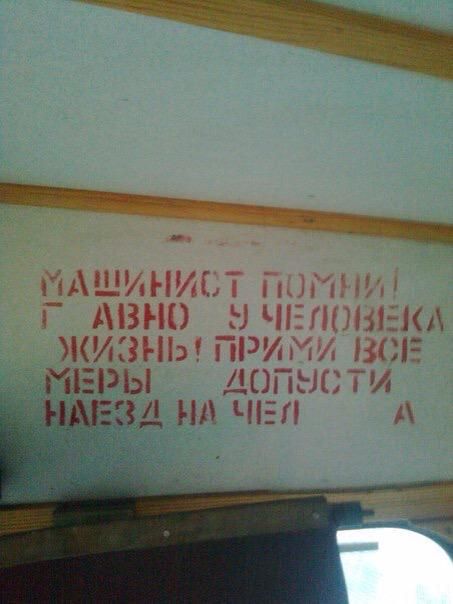 МАШИНИСТ ПОМНИ!
Г АВНО У ЧЕЛОВЕКА
ЖИЗНЬ! ПРИМИ ВСЕ
МЕРЫ ДОПУСТИ
НАЕЗД НА ЧЕЛ А